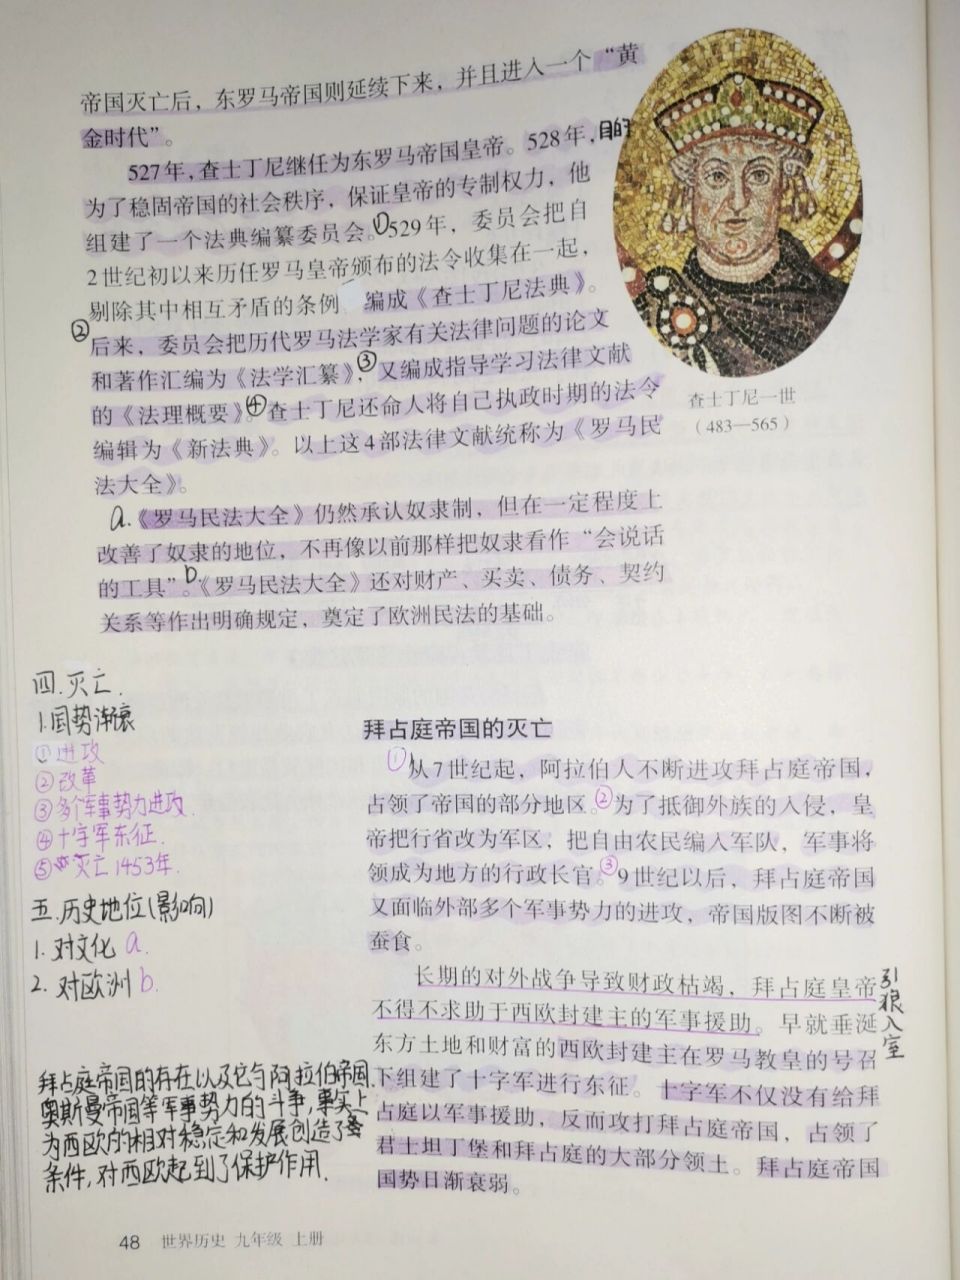 帝国灭亡后，东罗马帝国则延续下来，并且进入一个“黄
金时代”。
527年，查士丁尼继任为东罗马帝国皇帝。528年，目的
为了稳固帝国的社会秩序，保证皇帝的专制权力，他
组建了一个法典编纂委员会。①529年，委员会把自
2世纪初以来历任罗马皇帝颁布的法令收集在一起，
剔除其中相互矛盾的条例 编成《查士丁尼法典》。
②后来，委员会把历代罗马法学家有关法律问题的论文
和著作汇编为《法学汇纂》，③又编成指导学习法律文献
的《法理概要》。④查士丁尼还命人将自己执政时期的法令
编辑为《新法典》。以上这4部法律文献统称为《罗马民
法大全》。
查士丁尼一世
（483—565）
a.《罗马民法大全》仍然承认奴隶制，但在一定程度上
改善了奴隶的地位，不再像以前那样把奴隶看作“会说话
的工具”。b.《罗马民法大全》还对财产、买卖、债务、契约
关系等作出明确规定，奠定了欧洲民法的基础。
四.灭亡.
1.国势渐衰
①进攻
②改革
③多个军事势力进攻.
④十字军东征.
⑤灭亡1453年.
五.历史地位(影响)
1.对文化 a.
2.对欧洲 b.
拜占庭帝国的灭亡
①从7世纪起，阿拉伯人不断进攻拜占庭帝国，
占领了帝国的部分地区。②为了抵御外族的入侵，皇
帝把行省改为军区，把自由农民编入军队，军事将
领成为地方的行政长官。③9世纪以后，拜占庭帝国
又面临外部多个军事势力的进攻，帝国版图不断被
蚕食。
长期的对外战争导致财政枯竭，拜占庭皇帝
不得不求助于西欧封建主的军事援助。早就垂涎
东方土地和财富的西欧封建主在罗马教皇的号召
下组建了十字军进行东征。十字军不仅没有给拜
占庭以军事援助，反而攻打拜占庭帝国，占领了
君士坦丁堡和拜占庭的大部分领土。拜占庭帝国
国势日渐衰弱。
引狼入室
拜占庭帝国的存在以及它与阿拉伯帝国.
奥斯曼帝国等军事势力的斗争,事实上
为西欧的相对稳定和发展创造了
条件,对西欧起到了保护作用.
48 世界历史 九年级 上册